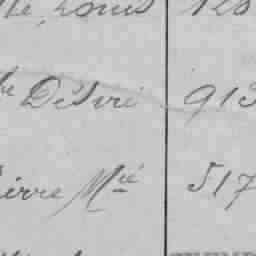 Louis 128
Désiré 913
ierre Mie 517